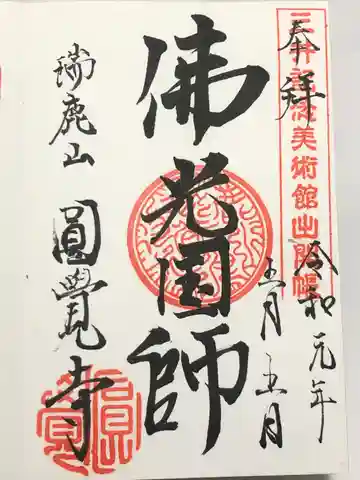 三井記念美術館出開帳
奉拝
令和元年
五月五日
佛光国師
瑞鹿山
圓覺寺
圓覺